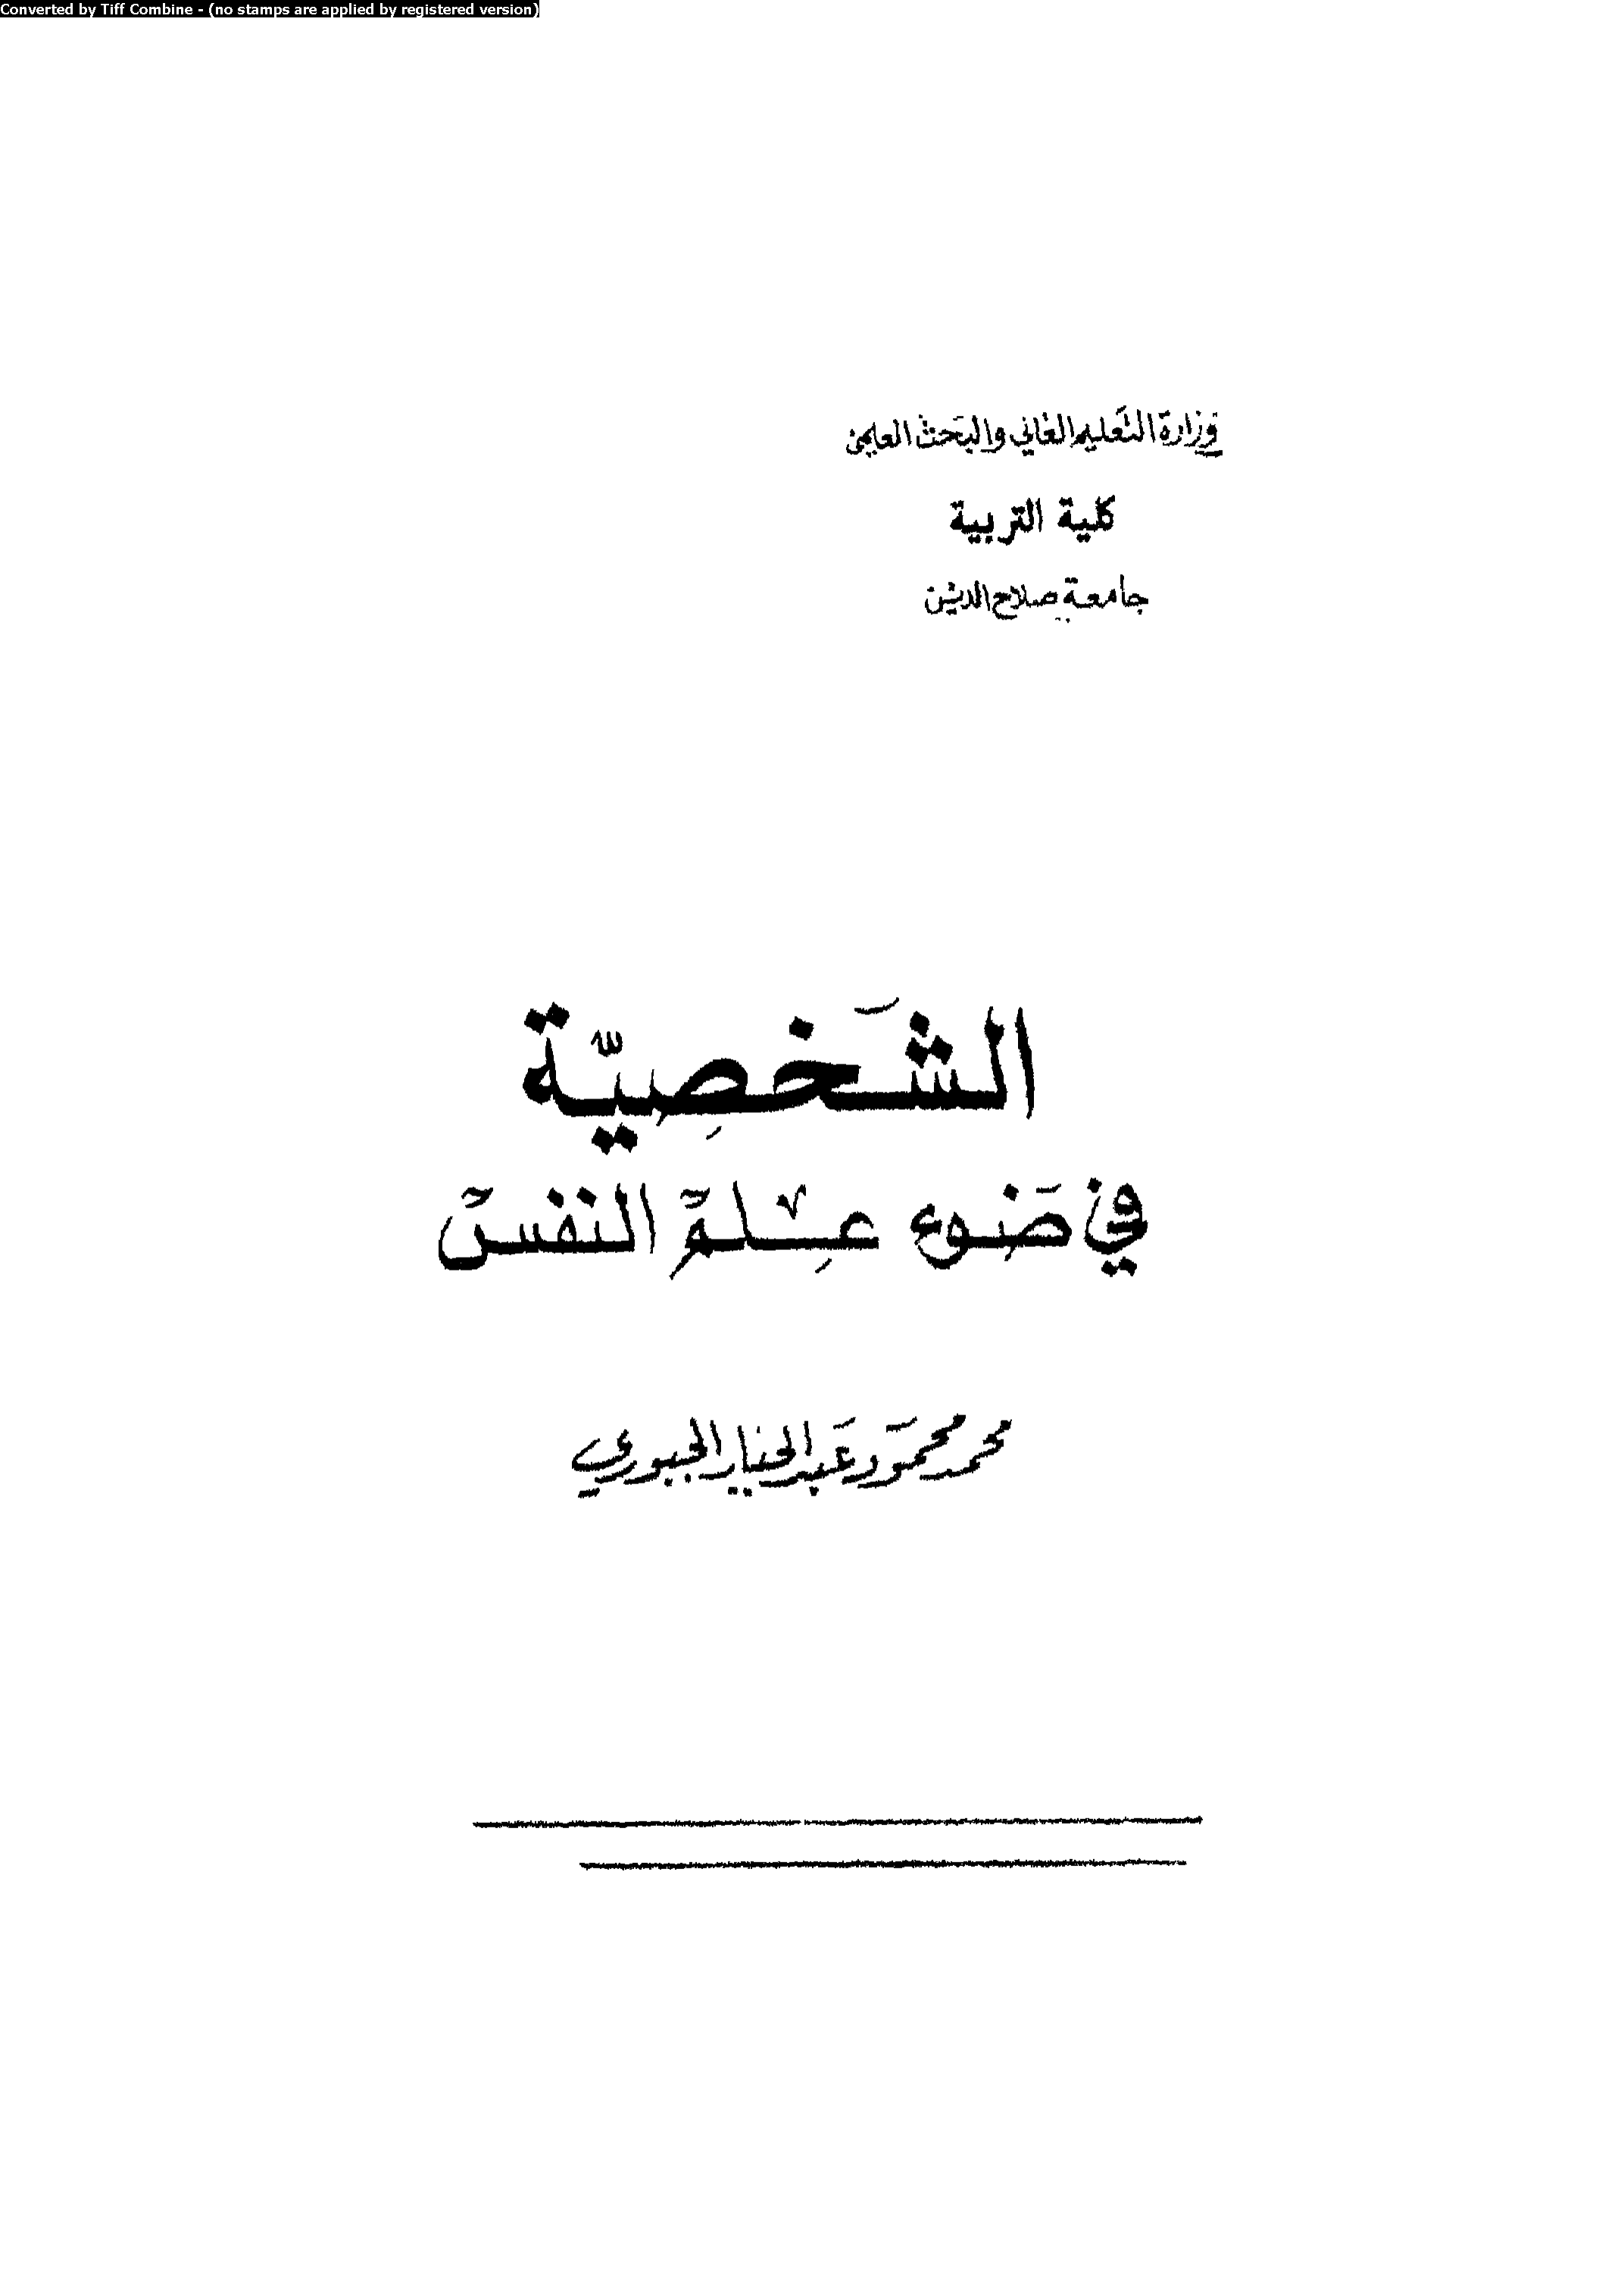 Converted by Tiff Combine - (no stamps are applied by registered version)
وزارة التعليم العالي والبحث العلمي
كلية التربية
جامعة صلاح الدين
الشَخصِيّة
في ضَوء عِلم النفس
محمد محمود عبد الجبار الجبوري